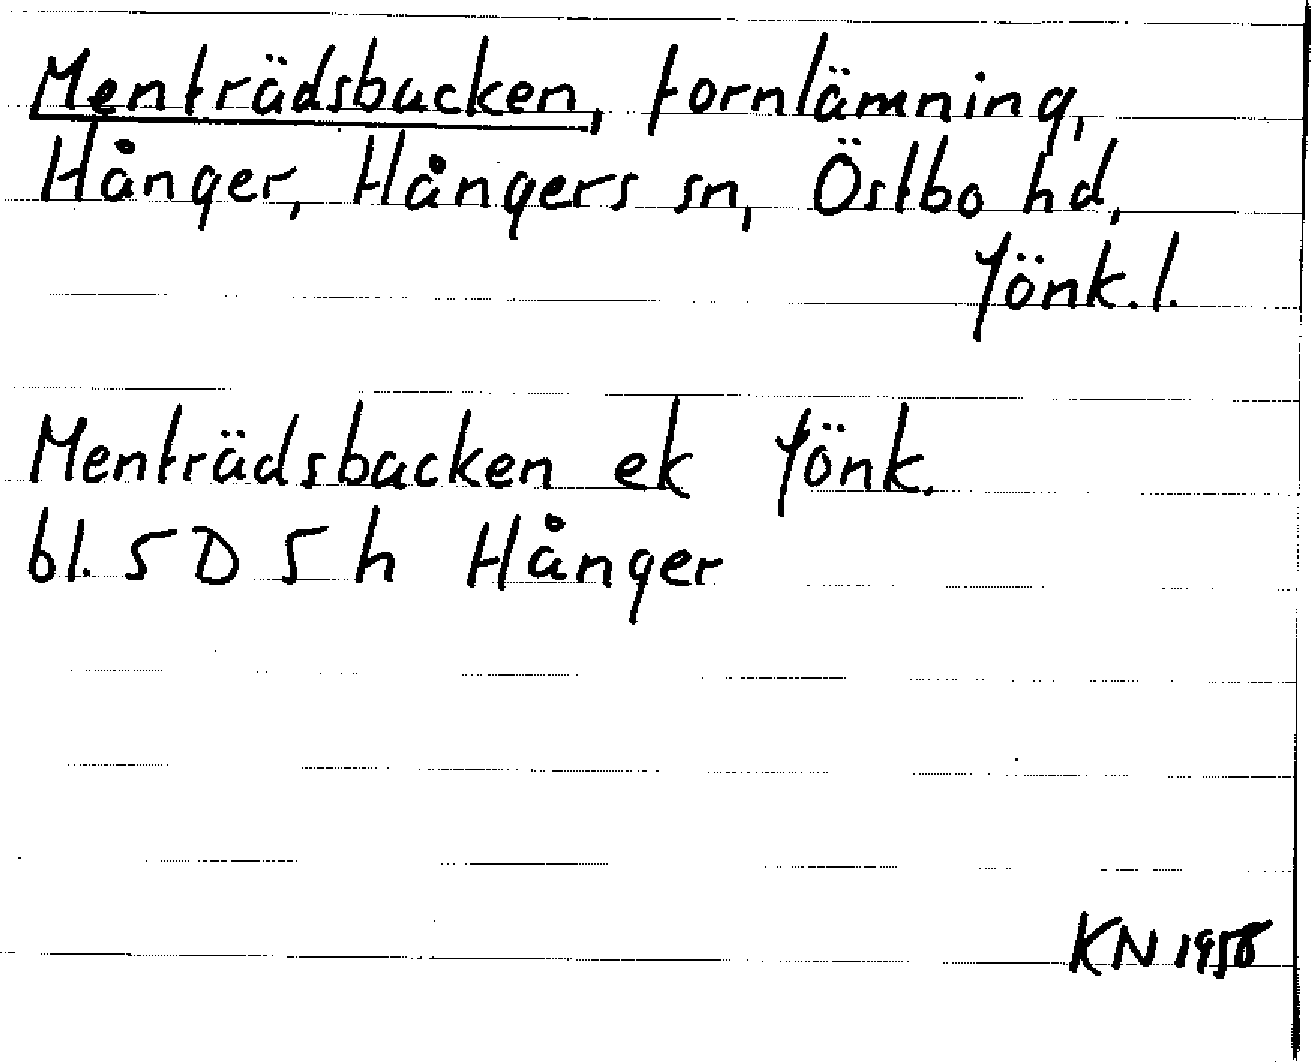 Menträdsbacken, fornlämning,
Hånger, Hångers sn, Östbo hd,
Jönk. l.
Menträdsbacken ek Jönk.
bl. 5 D 5 h Hånger
KN 1958